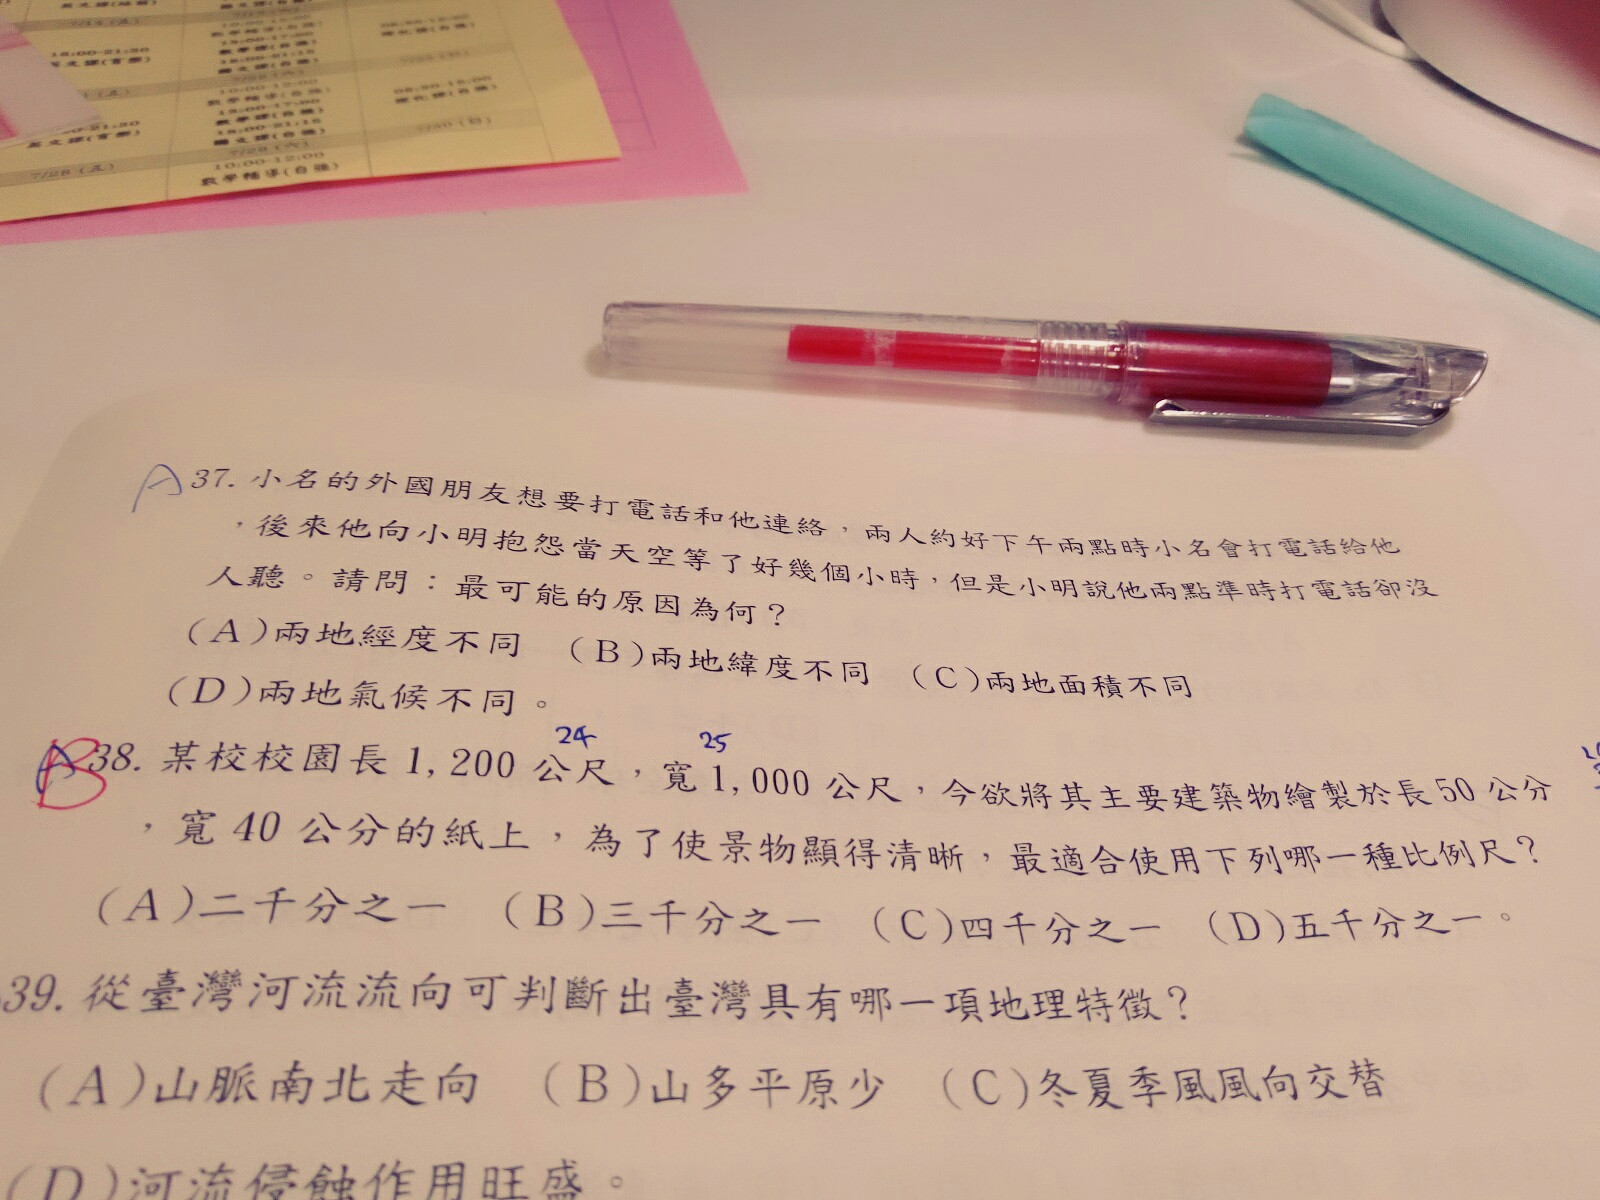 7/28(五)
7/29(六)
10:00-12:00
數學輔導(自強)
7/30(日)
A 37. 小名的外國朋友想要打電話和他連絡，兩人約好下午兩點時小名會打電話給他
，後來他向小明抱怨當天空等了好幾個小時，但是小明說他兩點準時打電話卻沒
人聽。請問：最可能的原因為何？
(A)兩地經度不同 (B)兩地緯度不同 (C)兩地面積不同
(D)兩地氣候不同。
24 25
B 38. 某校校園長1,200公尺，寬1,000公尺，今欲將其主要建築物繪製於長50公分
，寬40公分的紙上，為了使景物顯得清晰，最適合使用下列哪一種比例尺？
(A)二千分之一 (B)三千分之一 (C)四千分之一 (D)五千分之一。
39. 從臺灣河流流向可判斷出臺灣具有哪一項地理特徵？
(A)山脈南北走向 (B)山多平原少 (C)冬夏季風風向交替
(D)河流侵蝕作用旺盛。